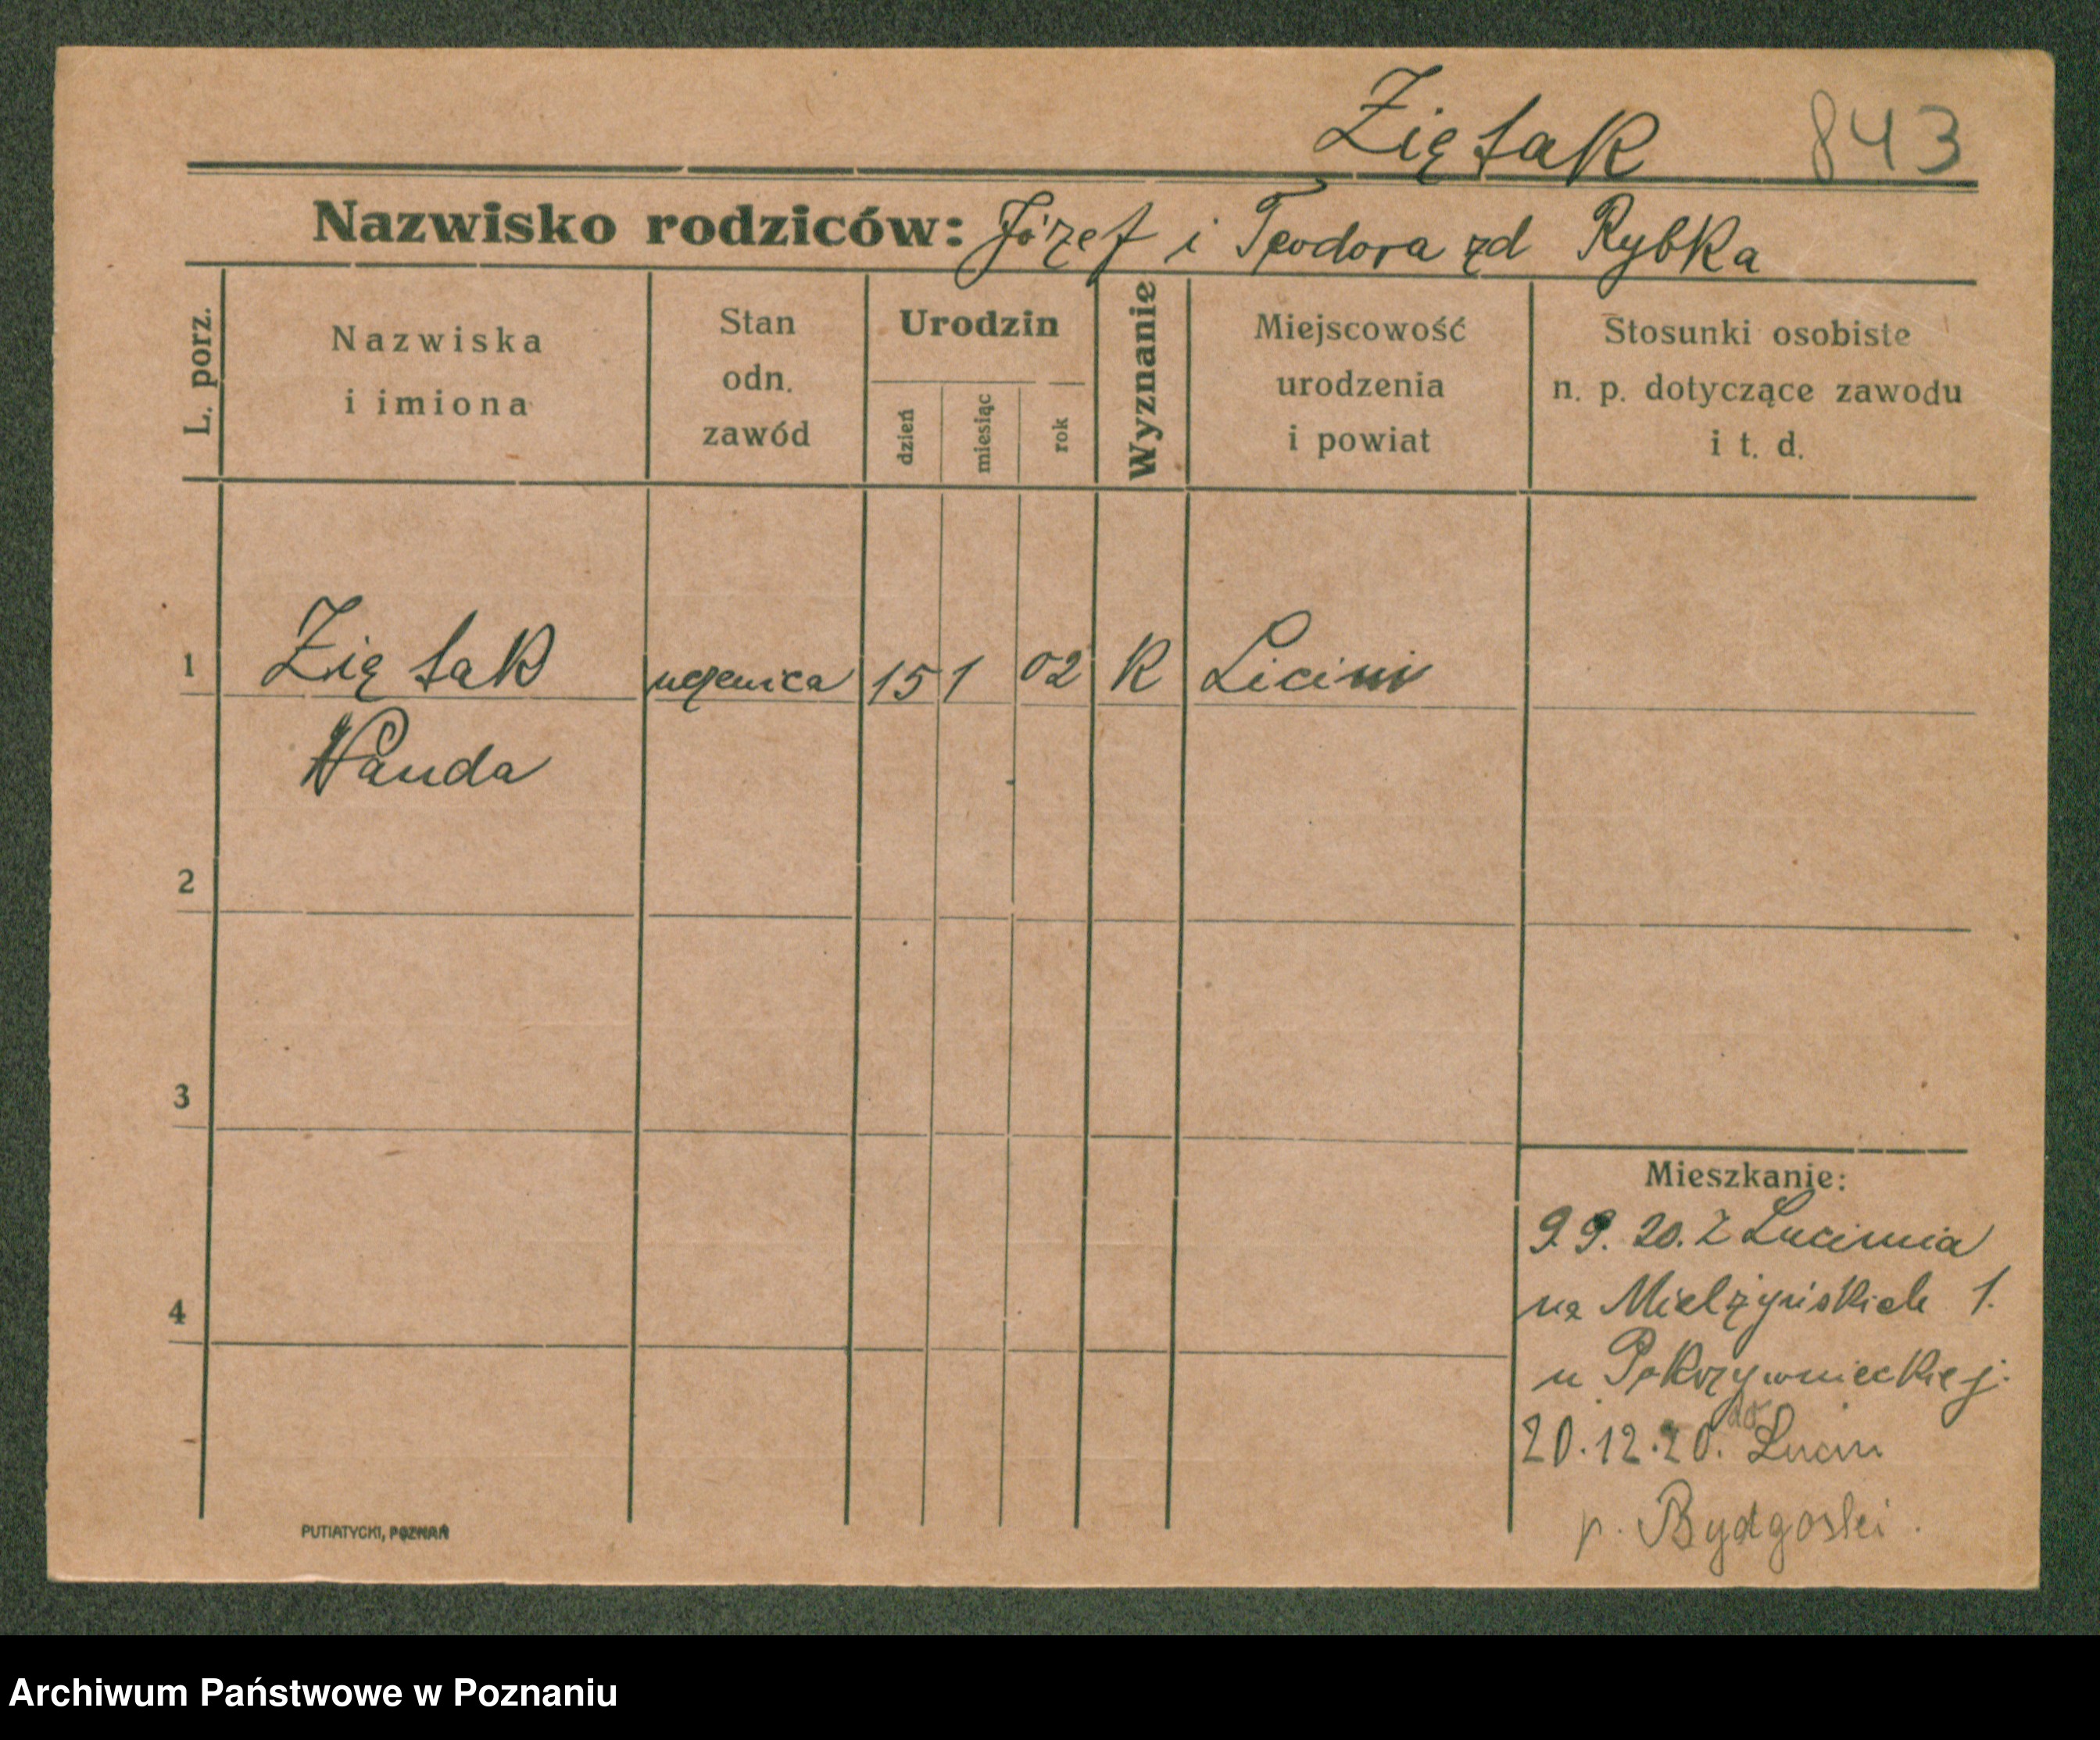 Ziętak 843
Nazwisko rodziców: Józef i Teodora zd Rybka
L. porz.
Nazwiska
i imiona
Stan
odn.
zawód
Urodzin
dzień
miesiąc
rok
Wyznanie
Miejscowość
urodzenia
i powiat
Stosunki osobiste
n. p. dotyczące zawodu
i t. d.
1 Ziętak uczenica 15 1 02 K Licini
Wanda
2
3
4
Mieszkanie:
9 9. 20. z Lucimia
na Mielżyńskich 1.
u Pokrzywnieckiej.
20.12.20. do Lucim
p. Bydgoski.
PUTIATYCKI, POZNAŃ
Archiwum Państwowe w Poznaniu